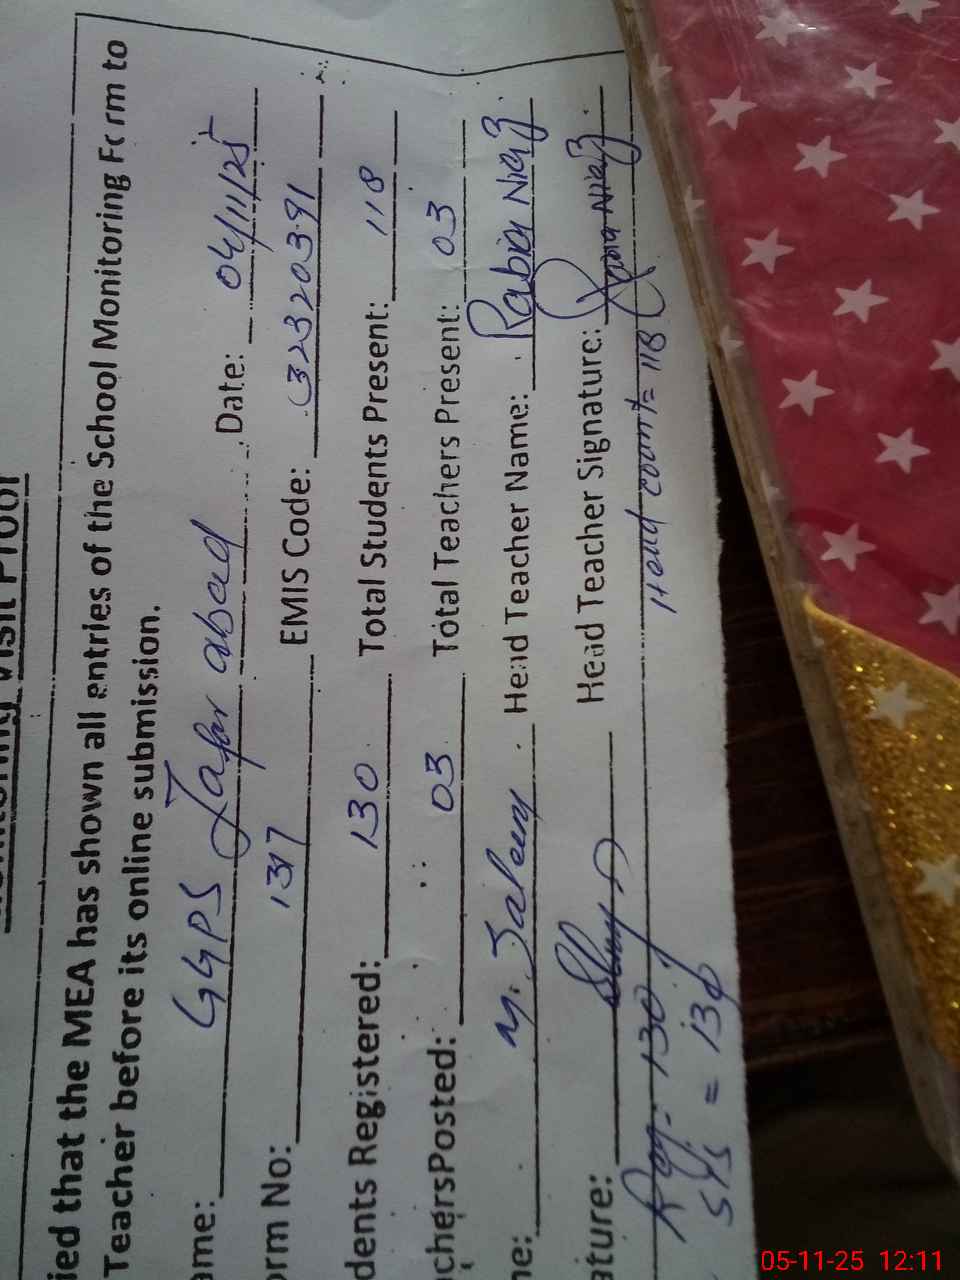 ied that the MEA has shown all entries of the School Monitoring Form to
Teacher before its online submission.
ame: GGPS Jafar abad Date: 04/11/25
orm No: 1317 EMIS Code: 32320391
dents Registered: 130 Total Students Present: 118
chersPosted: 03 Total Teachers Present: 03
ne: M. Saleem Head Teacher Name: Rabia Niaz
ature: Head Teacher Signature: Rabia Niaz
Reg = 130 Head count = 118
SYS = 130
05-11-25 12:11